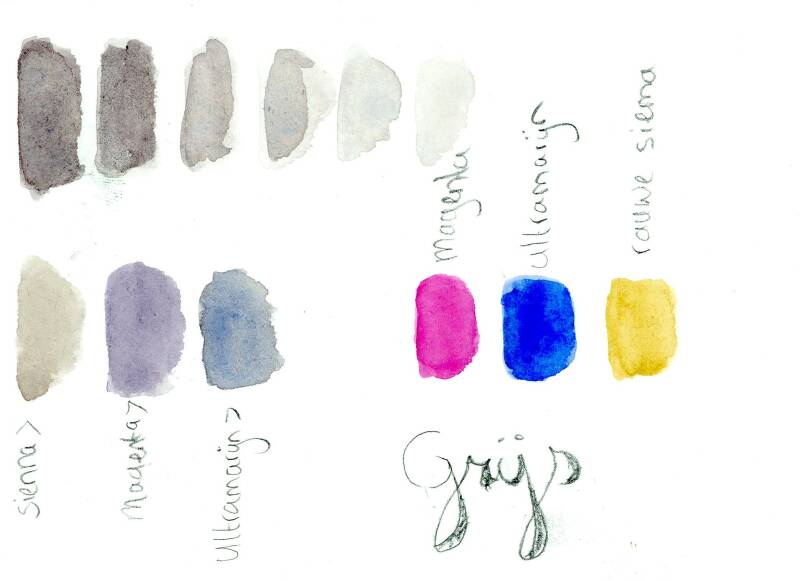 Magenta
Ultramarijn
rauwe sienna
Sienna >
Magenta >
Ultramarijn >
Grijs